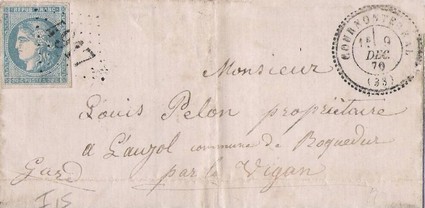 REPUB FRANC
COURNONTERRAL
1E 9
DEC.
70
(33)
Monsieur
Louis Pelon propriétaire
a Lauzol commune de Roquedur
Gard par le Vigan